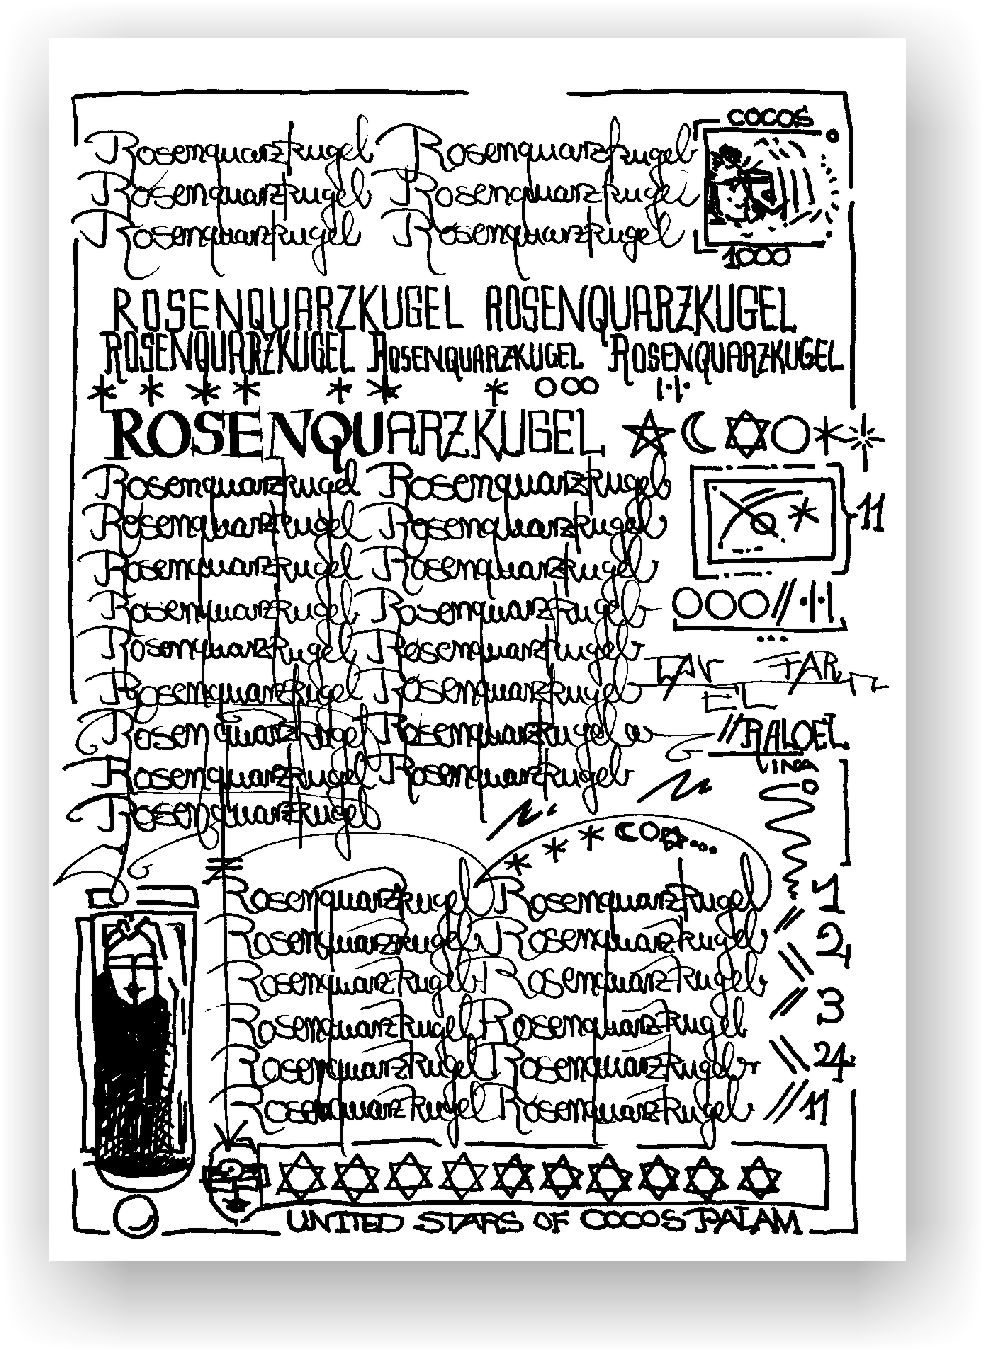 COCOS
Rosenquarzkugel Rosenquarzkugel
Rosenquarzkugel Rosenquarzkugel
Rosenquarzkugel Rosenquarzkugel
1000
ROSENQUARZKUGEL ROSENQUARZKUGEL
ROSENQUARZKUGEL ROSENQUARZKUGEL ROSENQUARZKUGEL
ROSENQUARZKUGEL
Rosenquarzkugel Rosenquarzkugel
Rosenquarzkugel Rosenquarzkugel
11
Rosenquarzkugel Rosenquarzkugel
Rosenquarzkugel Rosenquarzkugel
Rosenquarzkugel Rosenquarzkugel
Rosenquarzkugel Rosenquarzkugel
Rosenquarzkugel Rosenquarzkugel
EL
Rosenquarzkugel Rosenquarzkugel
Rosenquarzkugel
Rosenquarzkugel Rosenquarzkugel 1
Rosenquarzkugel Rosenquarzkugel 2
Rosenquarzkugel Rosenquarzkugel 3
Rosenquarzkugel Rosenquarzkugel
Rosenquarzkugel Rosenquarzkugel 24
Rosenquarzkugel Rosenquarzkugel //11
UNITED STARS OF COCOS PALAM